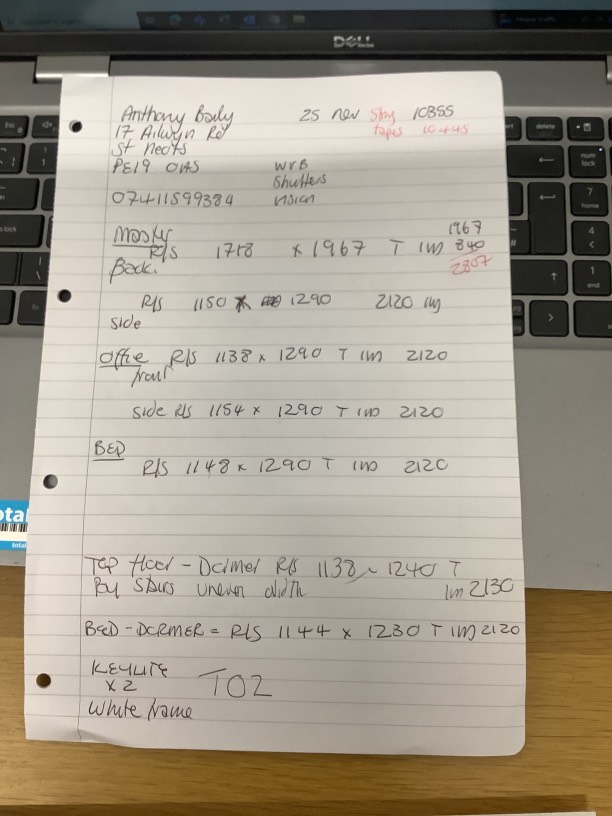 DELL
Anthony Baily 25 nov Stny 10855
17 Ailwyn Rd tapes 10445
St Neots
PE19 0AS WVB
Shutters
07411599384 vision
Master 1967
R/S 1758 x 1967 T IM 840
Back. 2807
R/S 1150 x 1290 2120
side
Office R/S 1138 x 1290 T IM 2120
front
side R/S 1154 x 1290 T IM 2120
BED
R/S 1148 x 1290 T IM 2120
Top floor - Dormer R/S 1138 x 1240 T
By Stairs uneven width IM 2130
BED - DORMER = R/S 1144 x 1230 T IM 2120
KEYLITE
x 2 T02
White frame